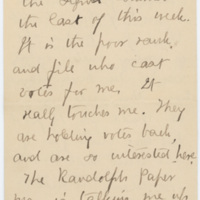 the
the last of this week.
It is the poor rank
and file who cast
votes for me. It
really touches me. They
are holding votes back,
and are so interested here.
The Randolph Paper
is talking me up